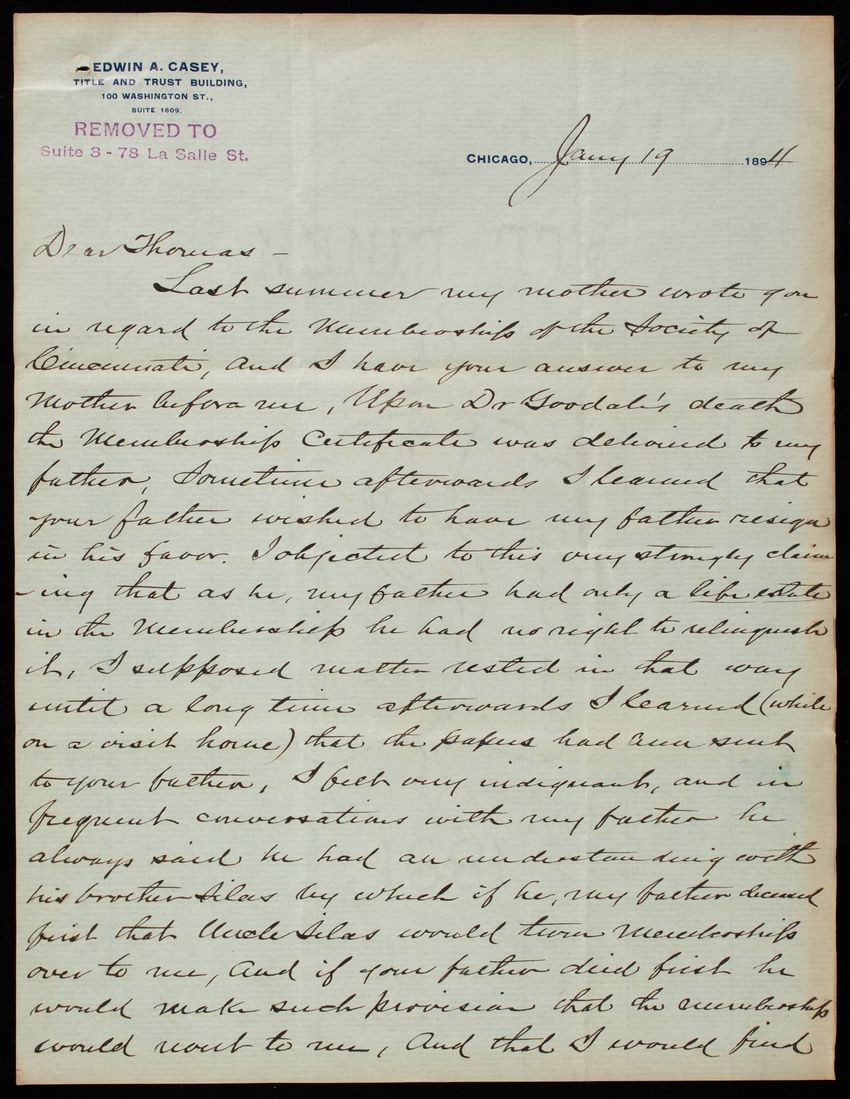 EDWIN A. CASEY,
TITLE AND TRUST BUILDING,
100 WASHINGTON ST.,
SUITE 1609.
REMOVED TO
Suite 3 - 78 La Salle St.
CHICAGO, Jany 19 1894
Dear Thomas -
Last summer my mother wrote you
in regard to the Membership of the Society of
Cincinnati, and I have your answer to my
Mother before me, Upon Dr Goodale's death
the Membership Certificate was delivered to my
father, Sometime afterwards I learned that
your father wished to have my father resign
in his favor. I objected to this very strongly claim
-ing that as he, my father had only a life estate
in the Membership he had no right to relinquish
it, I supposed matter rested in that way
until a long time afterwards I learned (while
on a visit home) that the papers had been sent
to your father, I felt very indignant, and in
frequent conversations with my father he
always said he had an understanding with
his brother Silas by which if he, my father deceased
first that Uncle Silas would turn Membership
over to me, And if your father died first he
would make such provision that the membership
would revert to me, And that I would find